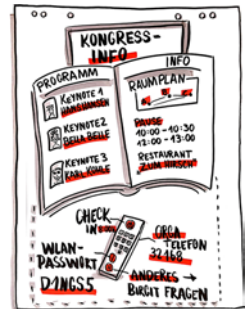 KONGRESS-
INFO
PROGRAMM
KEYNOTE 1
HANS HANSEN
KEYNOTE 2
BELLA BELLE
KEYNOTE 3
KARL KOHLE
INFO
RAUMPLAN
A. B. C.
PAUSE
10:00 - 10:30
12:00 - 13:00
RESTAURANT
"ZUM HIRSCH"
CHECK
IN
WLAN-
PASSWORT
D1NGS5
ORGA
TELEFON
32 168
ANDERES →
BIRGIT FRAGEN